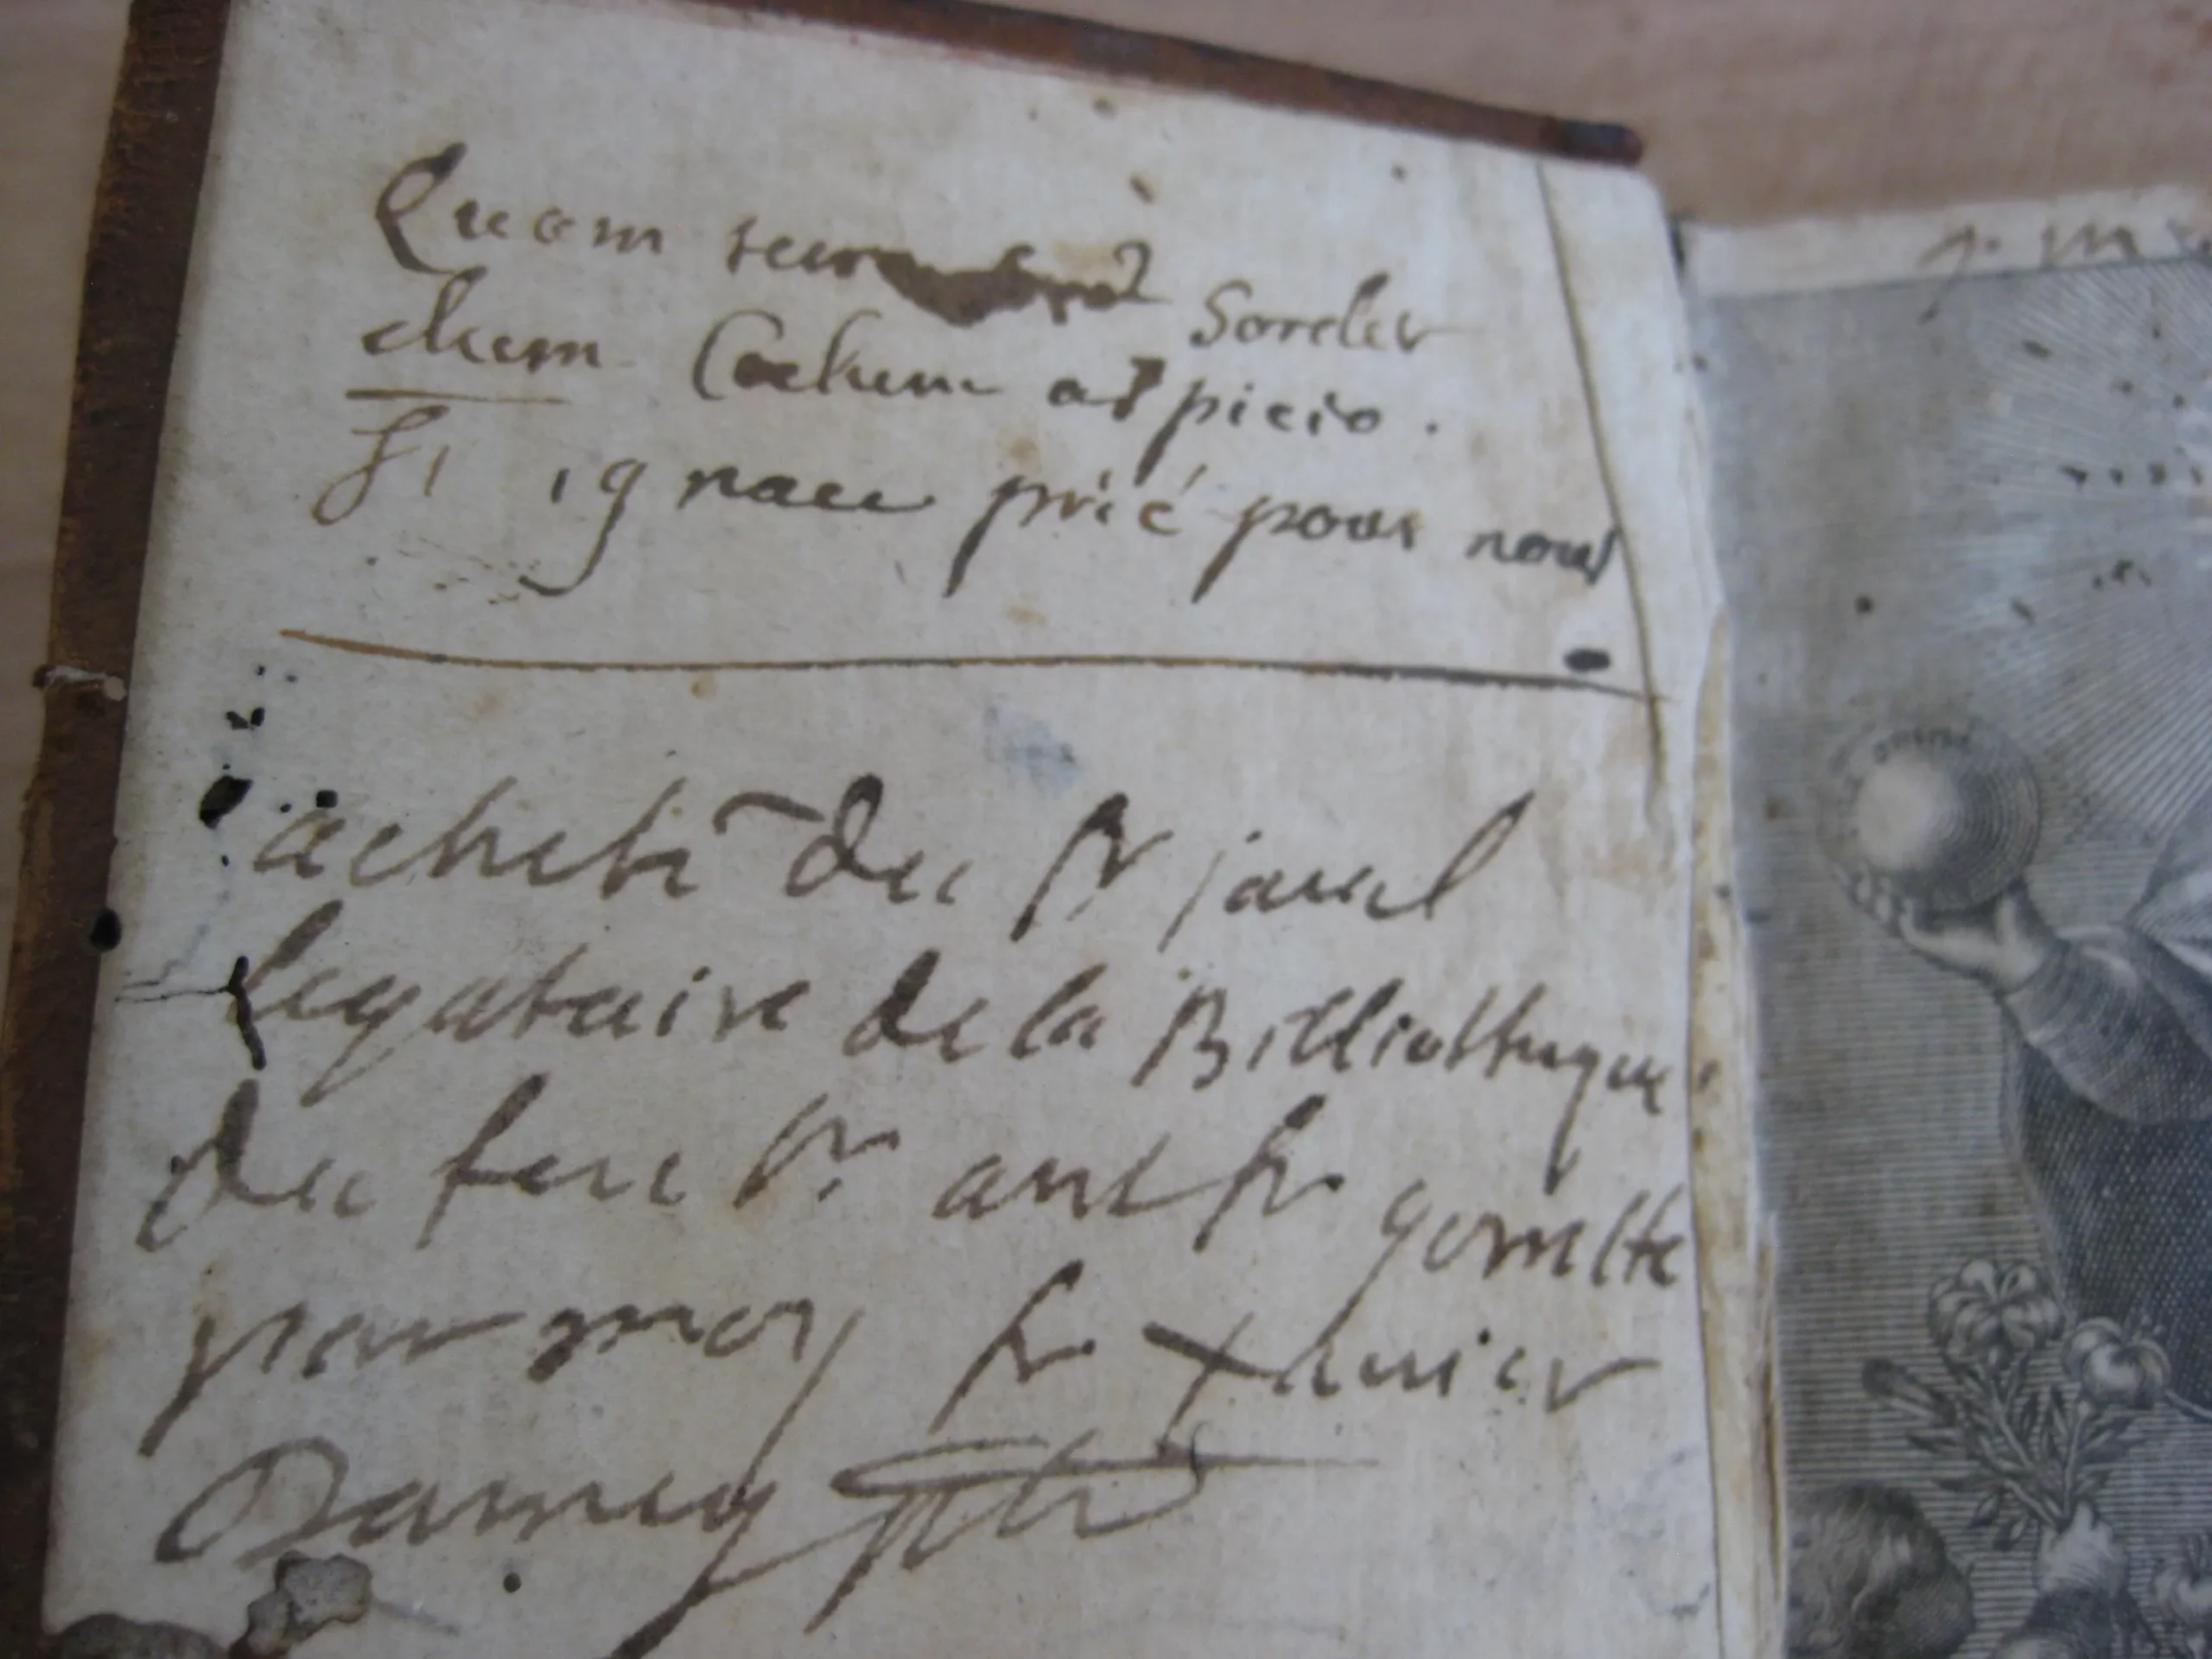 Quam terra Sordet
dum Coelum aspicio.
St ignace prié pour nous
acheté du Sr jauel
legataire de la Bibliotheque
du feu Sr ant fr.
par moy fr. xauier
Damey